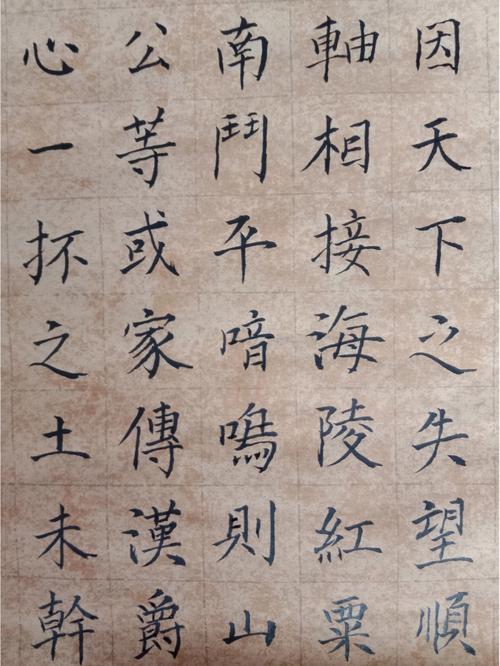 因天下之失望順
軸相接海陵紅粟
南鬥平喑鳴則山
公等或家傳漢爵
心一抔之土未幹